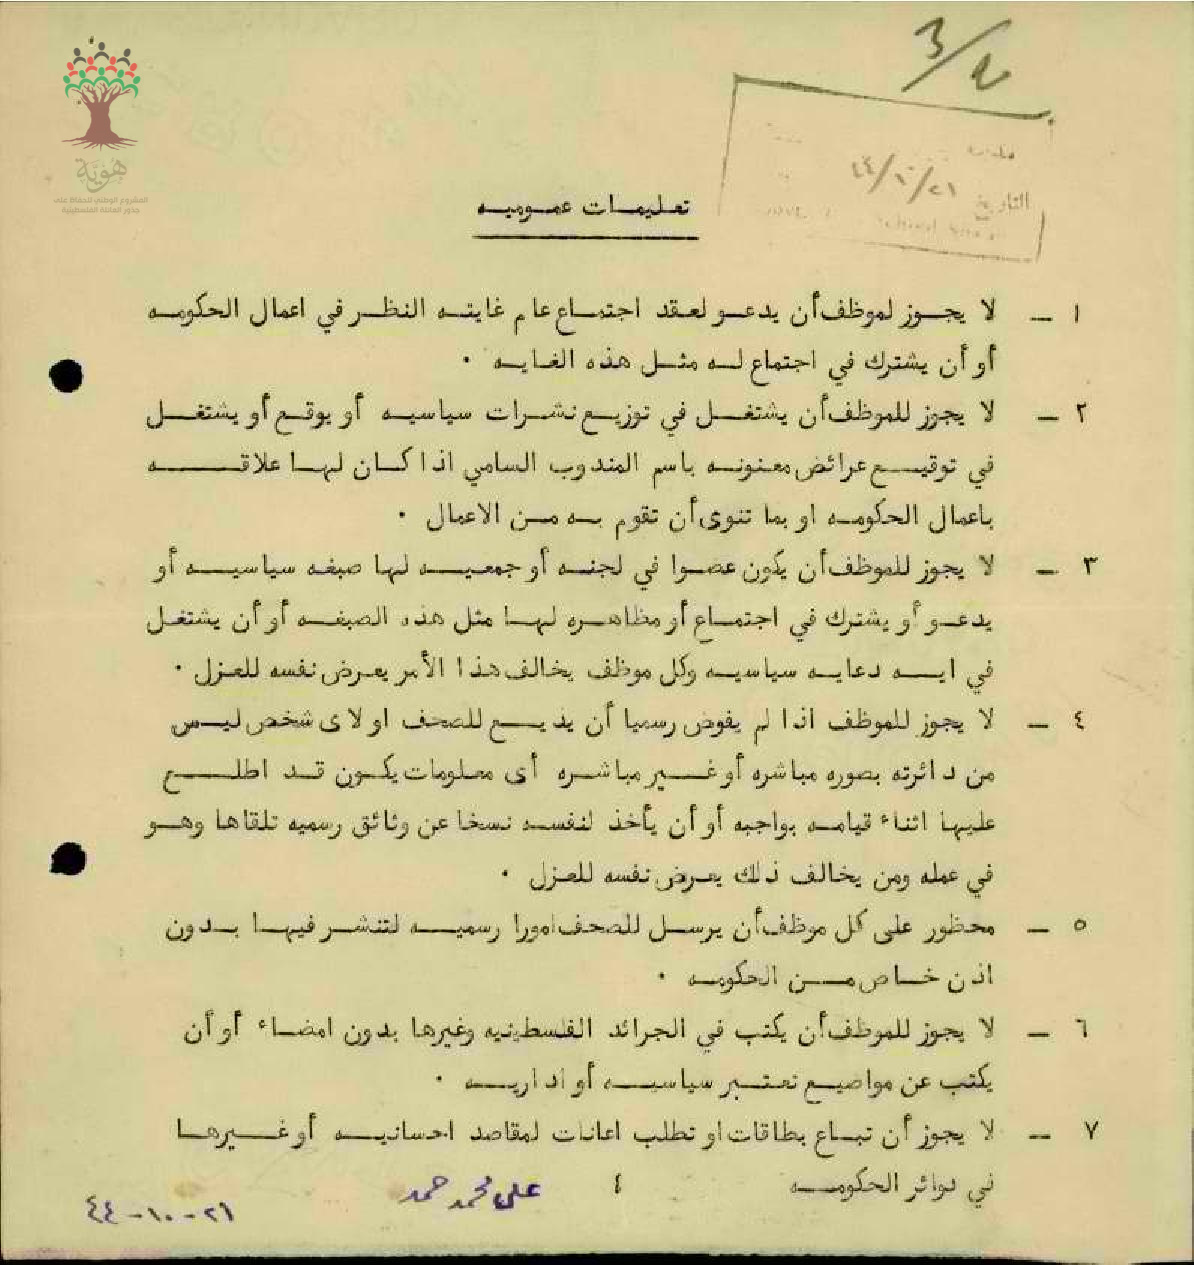 3/2
هُويّة
المشروع الوطني للحفاظ على
جذور العائلة الفلسطينية
التاريخ ٢١/١٠/٤٤
تعليمات عموميه
١ – لا يجوز لموظف أن يدعو لعقد اجتماع عام غايته النظر في اعمال الحكومه
أو أن يشترك في اجتماع له مثل هذه الغايه ٠
٢ – لا يجوز للموظف أن يشتغل في توزيع نشرات سياسيه أو يوقع أو يشتغل
في توقيع عرائض معنونه باسم المندوب السامي اذا كان لها علاقه
باعمال الحكومه او بما تنوى أن تقوم به من الاعمال ٠
٣ – لا يجوز للموظف أن يكون عضوا في لجنه أو جمعيه لها صبغه سياسيه أو
يدعو أو يشترك في اجتماع أو مظاهره لها مثل هذه الصبغه أو أن يشتغل
في ايه دعايه سياسيه وكل موظف يخالف هذا الأمر يعرض نفسه للعزل ٠
٤ – لا يجوز للموظف اذا لم يفوض رسميا أن يذيع للصحف او لاى شخص ليس
من دائرته بصوره مباشره أو غير مباشره أى معلومات يكون قد اطلع
عليها اثناء قيامه بواجبه أو أن يأخذ لنفسه نسخا عن وثائق رسميه تلقاها وهو
في عمله ومن يخالف ذلك يعرض نفسه للعزل ٠
٥ – محظور على كل موظف أن يرسل للصحف امورا رسميه لتنشر فيها بدون
اذن خاص من الحكومه ٠
٦ – لا يجوز للموظف أن يكتب في الجرائد الفلسطينيه وغيرها بدون امضاء أو أن
يكتب عن مواضيع تعتبر سياسيه أو اداريه ٠
٧ – لا يجوز أن تباع بطاقات او تطلب اعانات لمقاصد احسانيه أو غيرها
في دوائر الحكومه ٤ على محمد حمد
٢١-١٠-٤٤